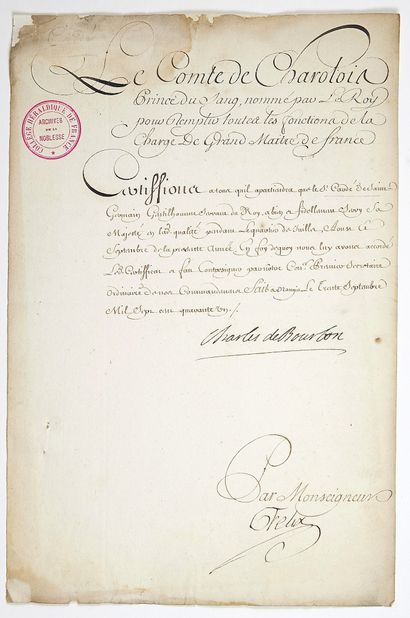 Le Comte de Charolois
Prince du Sang, nommé par Le Roy
pour Remplir toutes les fonctions de la
Charge De Grand Maitre de france
COLLÈGE HÉRALDIQUE DE FRANCE
ARCHIVES
DE LA
NOBLESSE
Certiffions a tous qu'il apartiendra que le Sr. de Saint
Germain Gentilhomme Servant du Roy, a bien et fidellement Servy Sa
Majesté en lad. qualité pendant Le quartier de Juillet, Aoust et
Septembre de la presente Année, En foy de quoy nous luy avons accordé
Le Certifficat et fait Contresigner par notre Secretaire
Ordinaire de nos Commandemens Fait a Le Trente Septembre
Mil Sept cent quarante un ./.
Charles de Bourbon
Par Monseigneur
Felix